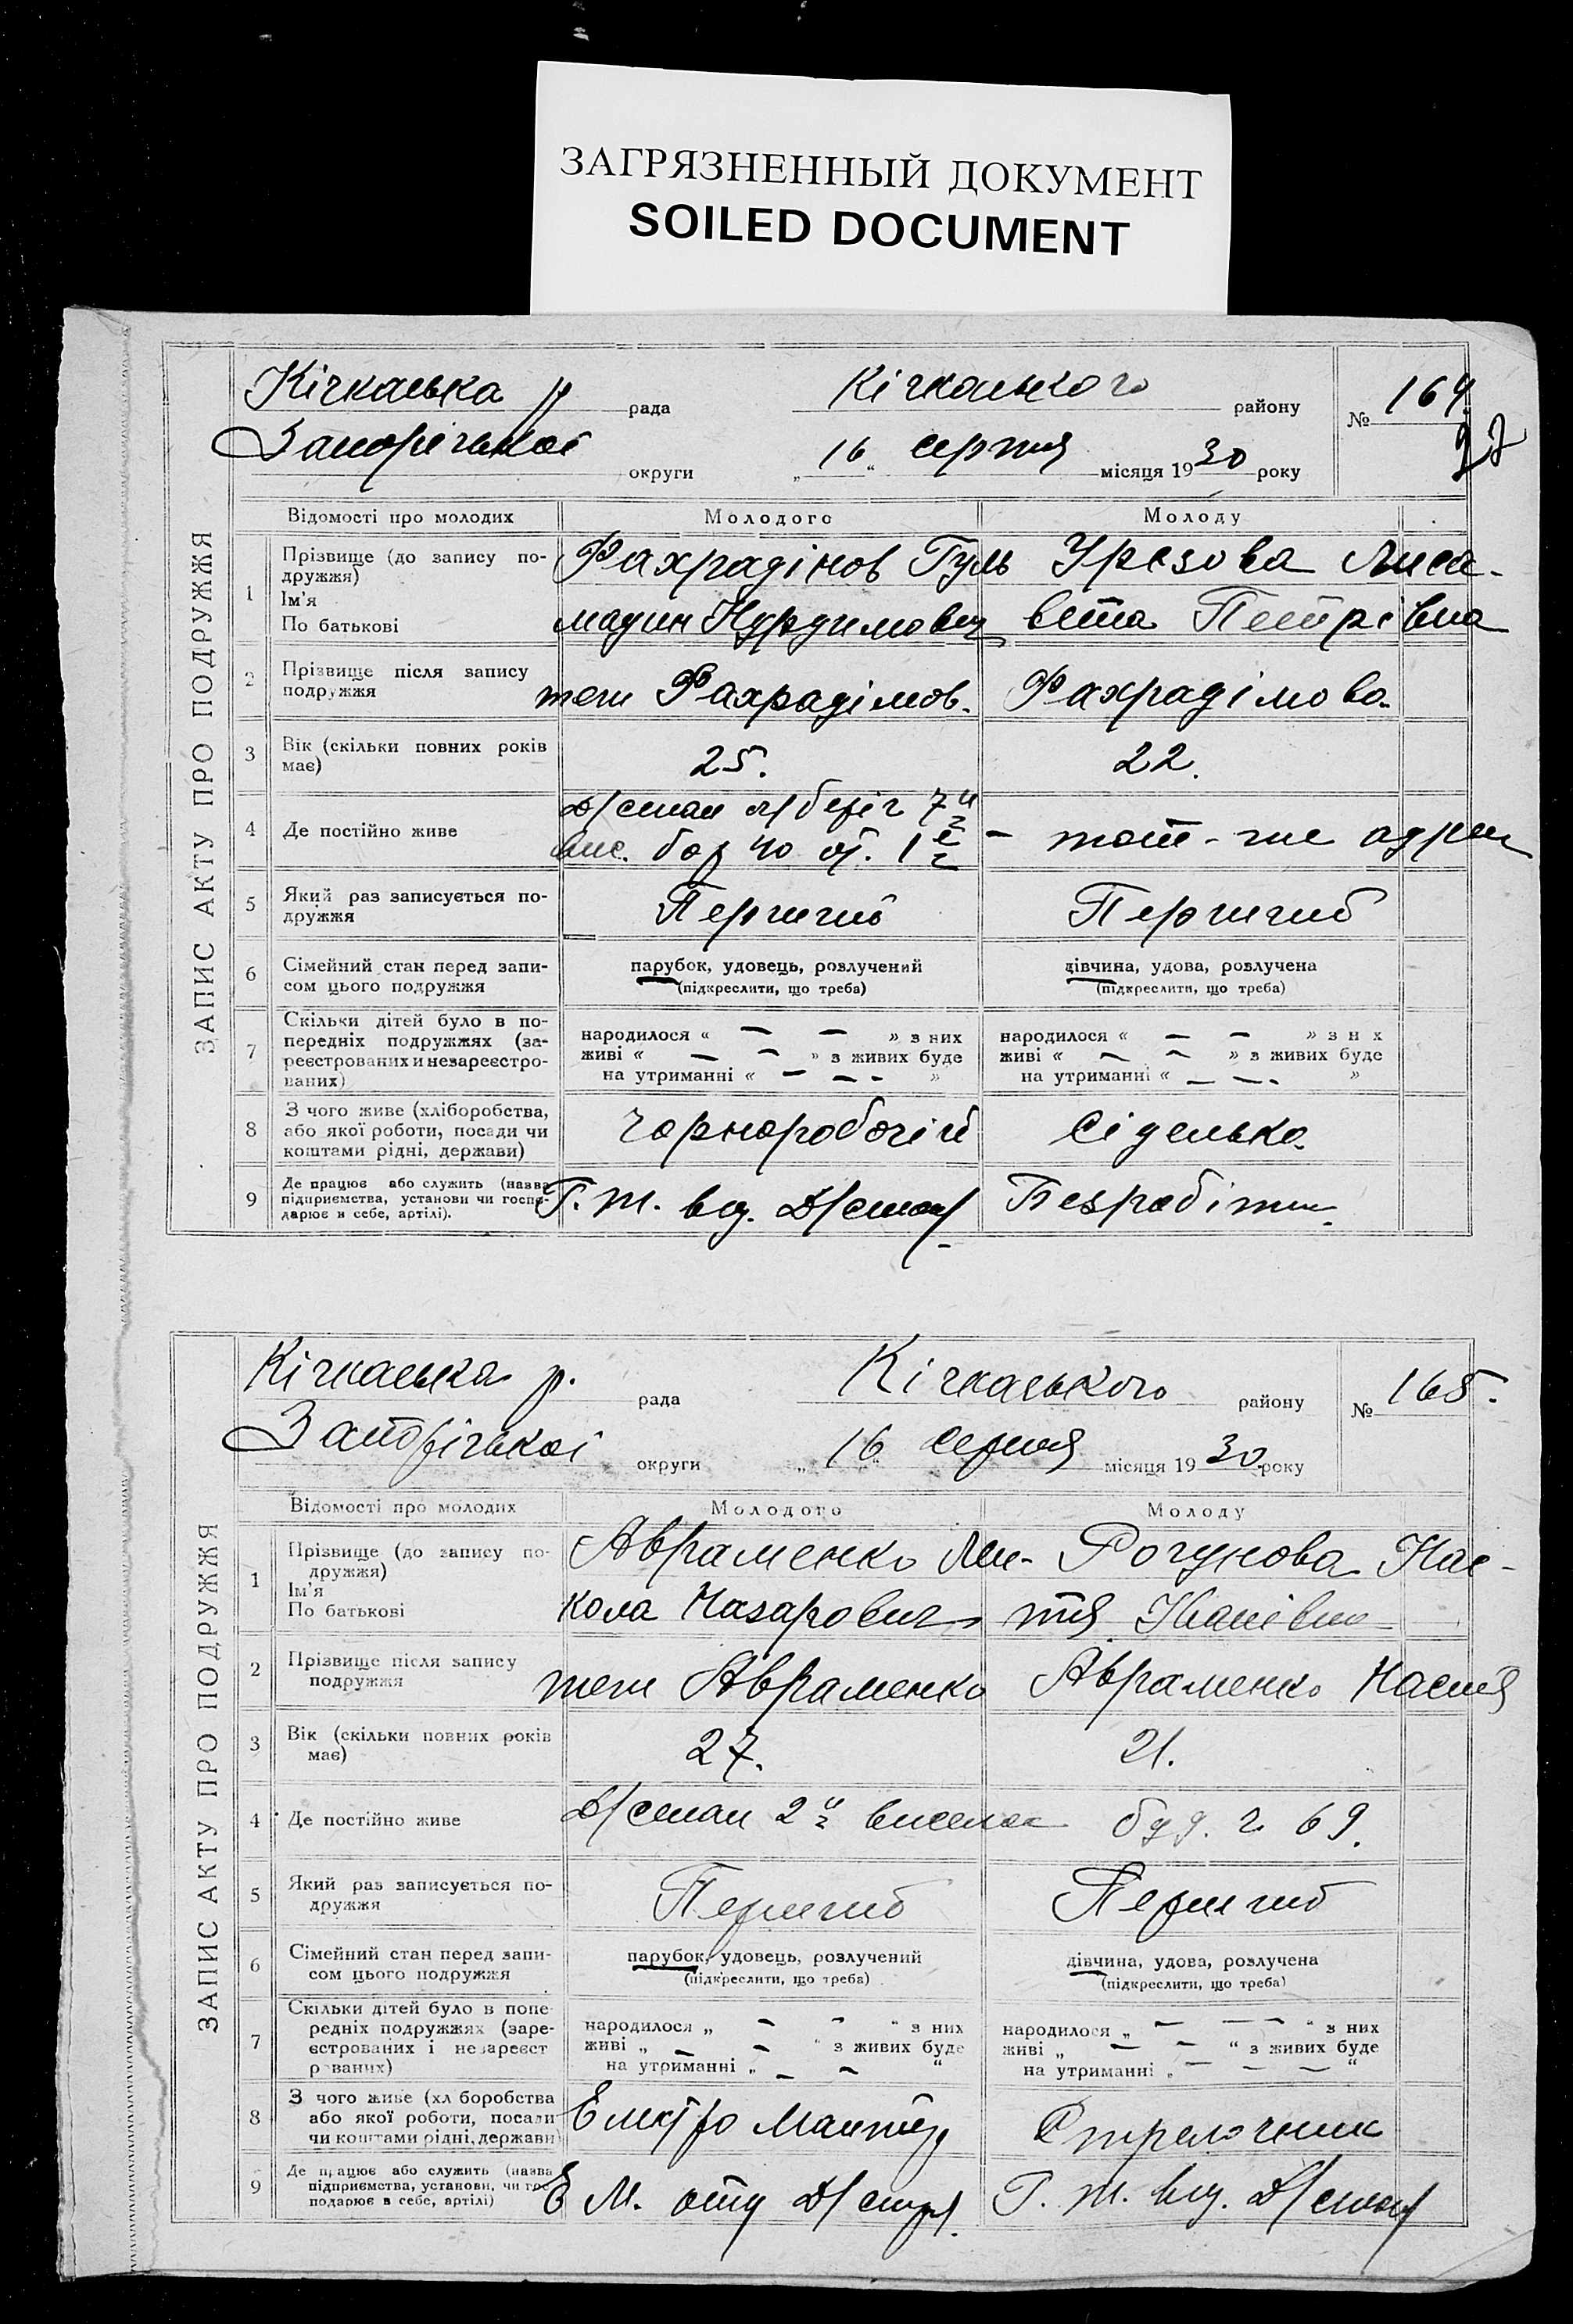 ЗАГРЯЗНЕННЫЙ ДОКУМЕНТ
SOILED DOCUMENT
ЗАПИС АКТУ ПРО ПОДРУЖЖЯ
Кічкаська р рада Кічкаського району № 164.
27
Запорізької округи „16“ серпня місяця 1930 року
Відомості про молодих Молодого Молоду
1 Прізвище (до запису по-
дружжя)
Ім'я
По батькові
Фахрадінов Гуль
мадин Нурдимович
Урезова Лиса-
вета Петрівна
2 Прізвище після запису
подружжя
теж Фахрадімов. Фахрадімова.
3 Вік (скільки повних років
має)
25. 22.
4 Де постійно живе
Д/стан беріг 7
вис. бар 40 - тот-же адрес
5 Який раз записується по-
дружжя
Перший Перший
6 Сімейний стан перед запи-
сом цього подружжя
парубок, удовець, розлучений
(підкреслити, що треба)
дівчина, удова, розлучена
(підкреслити, що треба)
7 Скільки дітей було в по-
передніх подружжях (за-
реєстрованих и незареєстро-
ваних)
народилося « — — » з них
живі « — — » з живих буде
на утриманні « — — - »
народилося « — — » з н х
живі « — — » з живих буде
на утриманні « — — - »
8 З чого живе (хліборобства,
або якої роботи, посади чи
коштами рідні, держави)
Чорноробочій Сіделько
9 Де працює або служить (назва
підприємства, установи чи госпо-
дарює в себе, артілі).
Г. т. від. Д/стану Безробітн.
ЗАПИС АКТУ ПРО ПОДРУЖЖЯ
Кічкаська р. рада Кічкаського району № 165.
Запорізької округи „16“ серпня місяця 1930 року
Відомості про молодих Молодого Молоду
1 Прізвище (до запису по-
дружжя)
Ім'я
По батькові
Авраменко Ми-
кола Назарович
Рогунова Нас-
тя Іванівна
2 Прізвище після запису
подружжя
теж Авраменко Авраменко Настя
3 Вік (скільки повних років
має)
27. 21.
4 Де постійно живе
Д/стан 2 виселок буд. ч 69.
5 Який раз записується по-
дружжя
Перший Перший
6 Сімейний стан перед запи-
сом цього подружжя
парубок, удовець, розлучений
(підкреслити, що треба)
дівчина, удова, розлучена
(підкреслити, що треба)
7 Скільки дітей було в попе
редніх подружжях (заре-
єстрованих і незареєст
р ваних)
народилося „ — — “ з них
живі „ — — “ з живих буде
на утриманні „ — — “
народилося „ — — — “ з них
живі „ — — “ з живих буде
на утриманні „ — — — “
8 З чого живе (хл боробства
або якої роботи, посади
чи коштами рідні, держави
Електро Стрелочник
9 Де працює або служить (назва
підприємства, установи, чи гос
подарює в себе, артілі)
Е М. отд Г. т. від. Д/стану